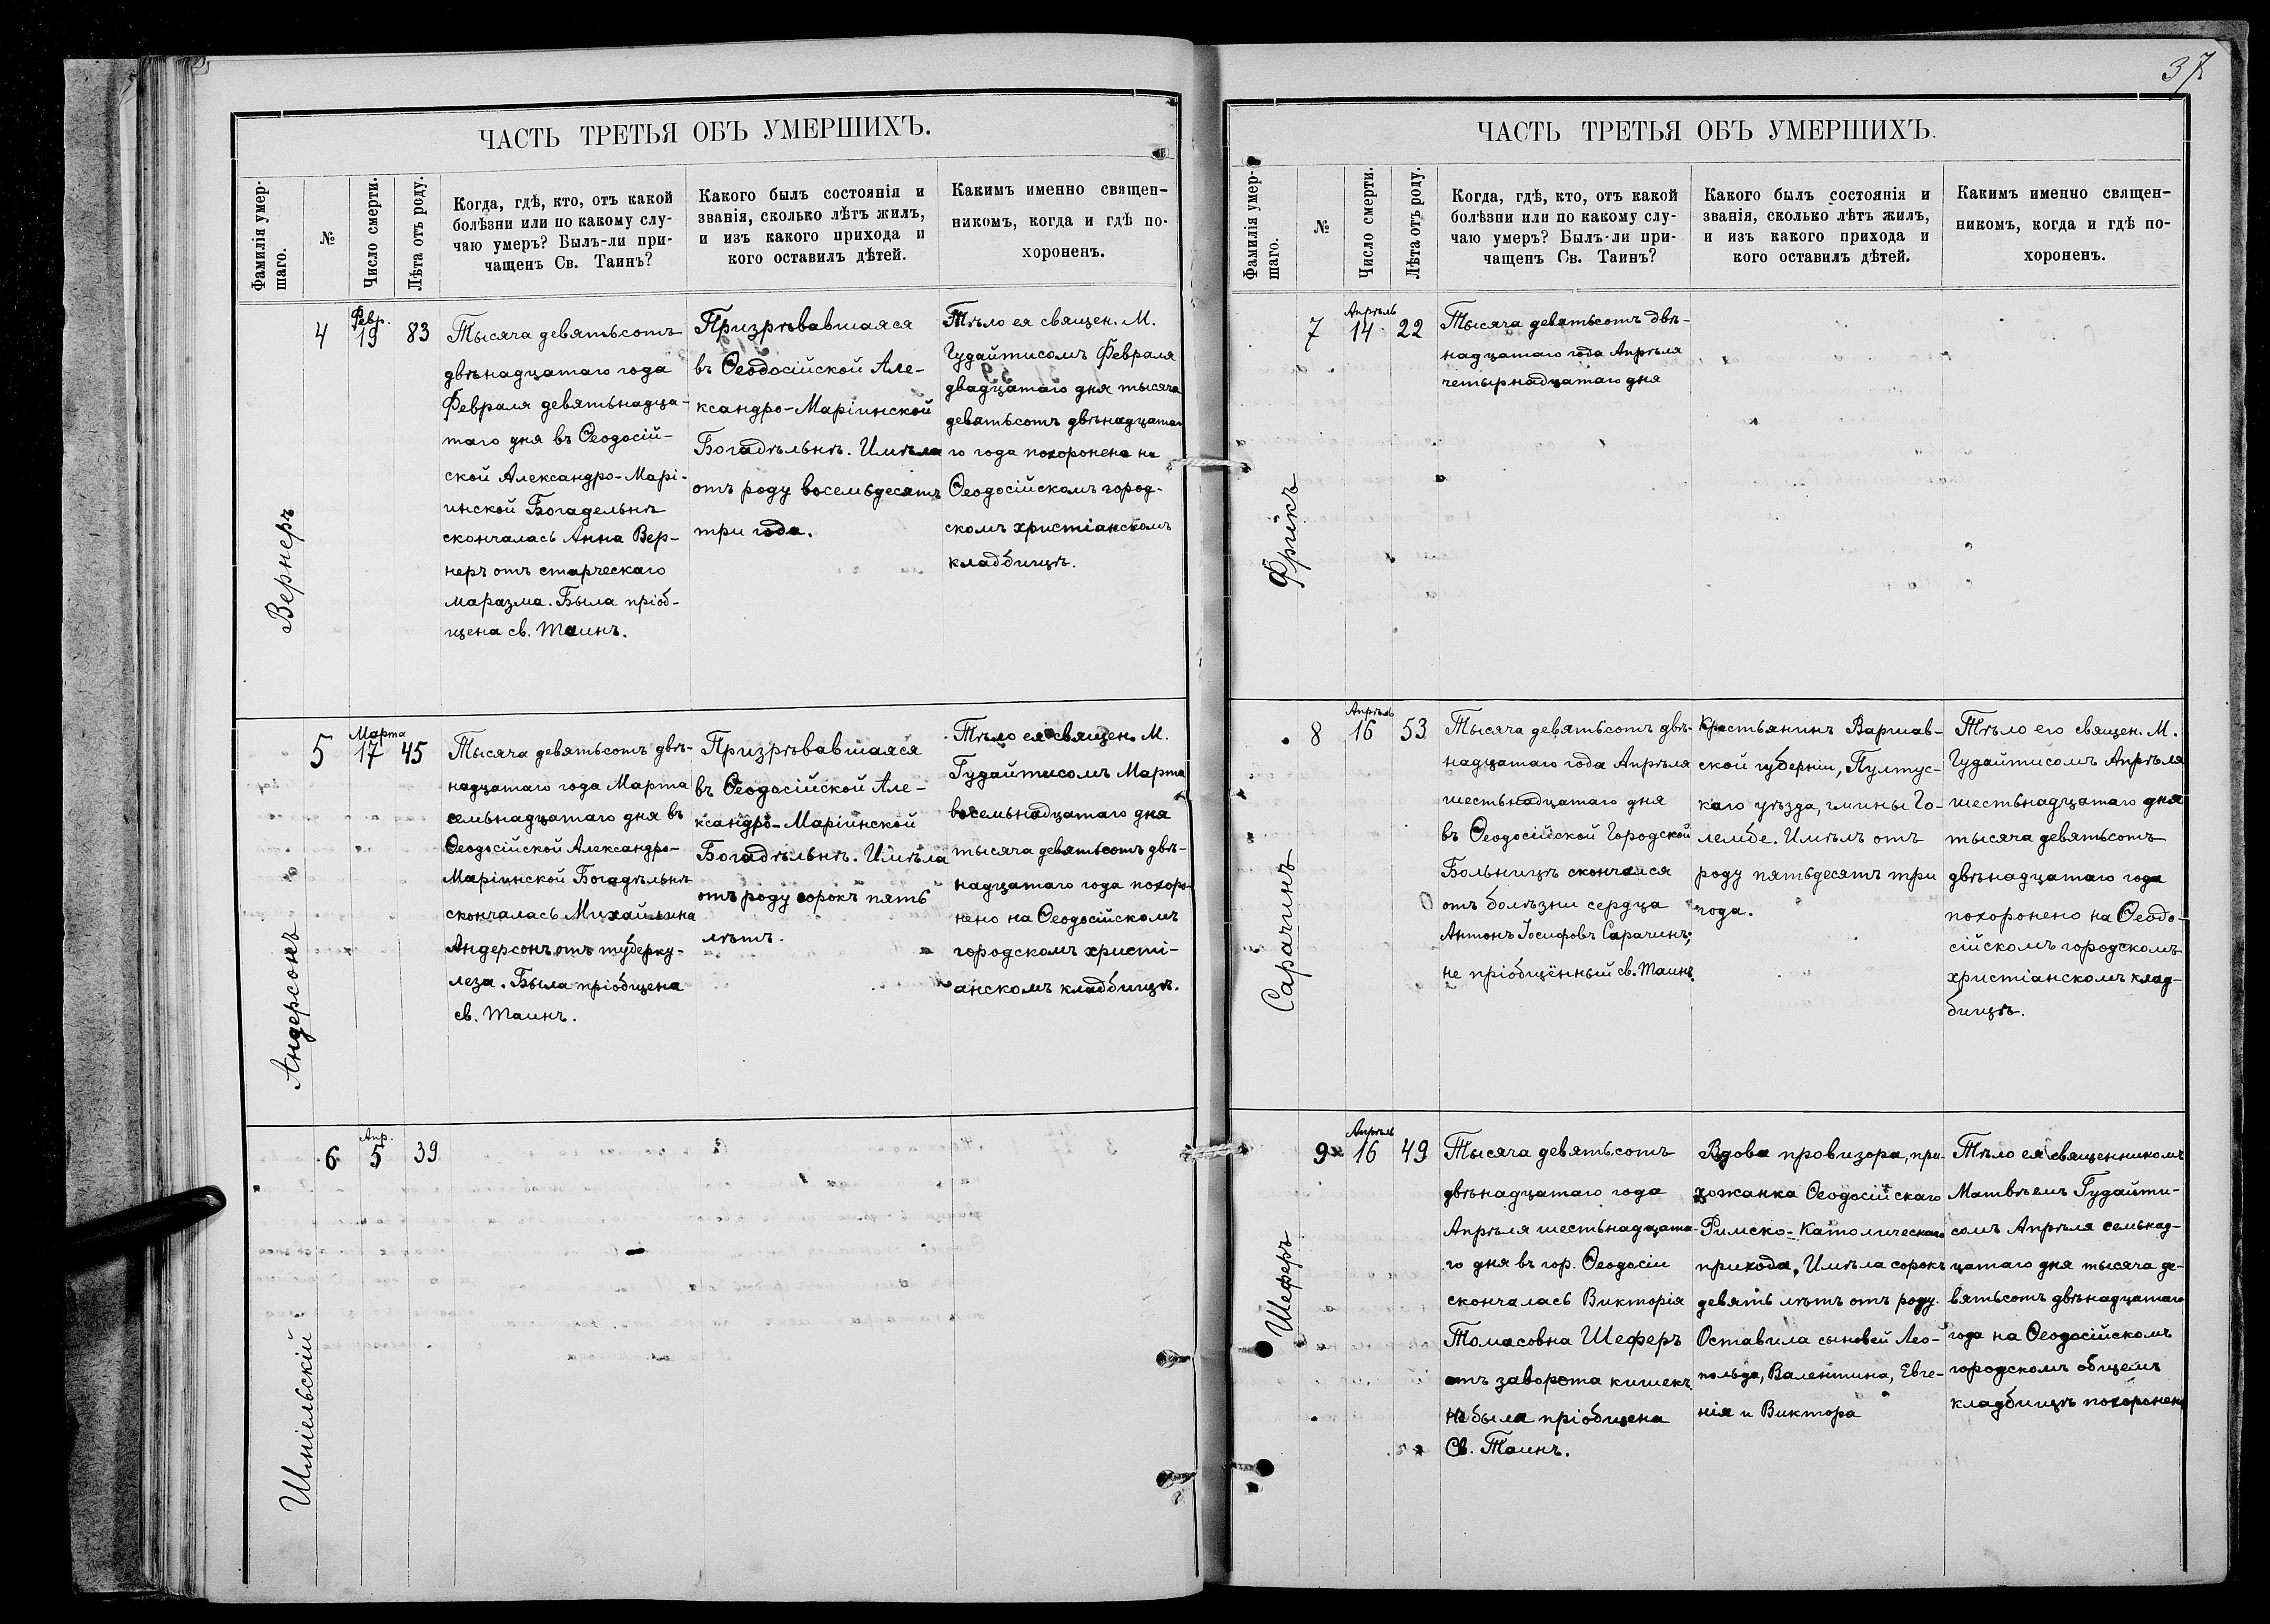 37
ЧАСТЬ ТРЕТЬЯ ОБЪ УМЕРШИХЪ.
Фамилія умер-
шаго.
№
Число смерти.
Лѣта отъ роду.
Когда, гдѣ, кто, отъ какой
болѣзни или по какому слу-
чаю умеръ? Былъ-ли при-
чащенъ Св. Таинъ?
Какого былъ состоянія и
званія, сколько лѣтъ жилъ,
и изъ какого прихода и
кого оставилъ дѣтей.
Какимъ именно священ-
никомъ, когда и гдѣ по-
хороненъ.
Вернеръ
4
Февр.
19
83
Тысяча девятьсотъ
двѣнадцатаго года
Февраля девятьнадца-
таго дня въ Ѳеодосій-
ской Александро-Марі-
инской Богадельнѣ
скончалась Анна Вер-
неръ отъ старческаго
маразма. Была пріоб-
щена св. Таинъ.
Призрѣвавшаяся
въ Ѳеодосійской Але-
ксандро-Маріинской
Богадѣльнѣ. Имѣла
отъ роду восемьдесятъ
три года.
Тѣло ея священ. М.
Гудайтисомъ Февраля
двадцатаго дня тысяча
девятьсотъ двѣнадцата-
го года похоронено на
Ѳеодосійскомъ город-
скомъ христіанскомъ
кладбищѣ.
Андерсонъ
5
Марта
17
45
Тысяча девятьсотъ двѣ-
надцатаго года Марта
семьнадцатаго дня въ
Ѳеодосійской Александро-
Маріинской Богадѣльнѣ
скончалась Михайлина
Андерсонъ отъ туберку-
леза. Была пріобщена
св. Таинъ.
Призрѣвавшаяся
въ Ѳеодосійской Але-
ксандро-Маріинской
Богадѣльнѣ. Имѣла
отъ роду сорокъ пять
лѣтъ.
Тѣло ея священ. М.
Гудайтисомъ Марта
восемьнадцатаго дня
тысяча девятьсотъ двѣ-
надцатаго года похоро-
нено на Ѳеодосійскомъ
городскомъ христі-
анскомъ кладбищѣ.
6
Апр.
5
39
ЧАСТЬ ТРЕТЬЯ ОБЪ УМЕРШИХЪ.
Фамилія умер-
шаго.
№
Число смерти.
Лѣта отъ роду.
Когда, гдѣ, кто, отъ какой
болѣзни или по какому слу-
чаю умеръ? Былъ-ли при-
чащенъ Св. Таинъ?
Какого былъ состоянія и
званія, сколько лѣтъ жилъ,
и изъ какого прихода и
кого оставилъ дѣтей.
Какимъ именно священ-
никомъ, когда и гдѣ по-
хороненъ.
Фрикъ
7
Апрѣль
14
22
Тысяча девятьсотъ двѣ-
надцатаго года Апрѣля
четырнадцатаго дня
Сарачинъ
8
Апрѣль
16
53
Тысяча девятьсотъ двѣ-
надцатаго года Апрѣля
шестьнадцатаго дня
въ Ѳеодосійской Городской
Больницѣ скончался
отъ болѣзни сердца
Антонъ Іосифовъ Сарачинъ,
не пріобщённый св. Таинъ
Крестьянинъ Варшав-
ской губерніи, Пултус-
каго уѣзда, гмины Го-
лембе. Имѣлъ отъ
роду пятьдесятъ три
года.
Тѣло его священ. М.
Гудайтисомъ Апрѣля
шестьнадцатаго дня
тысяча девятьсотъ
двѣнадцатаго года
похоронено на Ѳеодо-
сійскомъ городскомъ
христіанскомъ клад-
бищѣ.
Шеферъ
9
Апрѣль
16
49
Тысяча девятьсотъ
двѣнадцатаго года
Апрѣля шестьнадцата-
го дня въ гор. Ѳеодосіи
скончалась Викторія
Томасовна Шеферъ
отъ заворота кишекъ.
Не была пріобщена
Св. Таинъ.
Вдова провизора, при-
хожанка Ѳеодосійскаго
Римско-Католическаго
прихода, Имѣла сорокъ
девять лѣтъ отъ роду.
Оставила сыновей Лео-
польда, Валентина, Евге-
нія и Виктора
Тѣло ея священникомъ
Матвѣемъ Гудайти-
сомъ Апрѣля семьнад-
цатаго дня тысяча де-
вятьсотъ двѣнадцатаго
года на Ѳеодосійскомъ
городскомъ общемъ
кладбищѣ похоронено